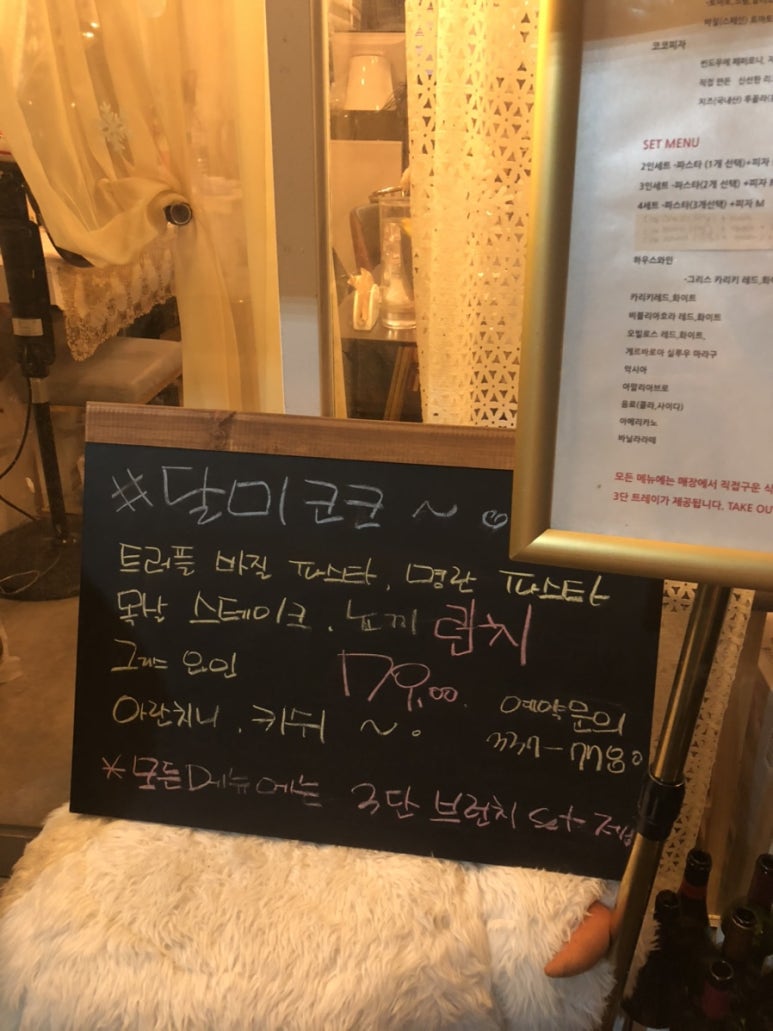 #달미코코 ~
트러플 바질 파스타, 명란 파스타
목살 스테이크, 뇨끼 런치
그라스 와인
아란치니, 키쉬 ~.
예약문의
337-7780
*모든메뉴에는 3단 브런치 set
코코피자
빈도우에 페퍼로니,
직접 만든 신선한
치즈(국내산) 루꼴라
SET MENU
2인세트 -파스타 (1개 선택)+피자
3인세트 -파스타(2개 선택) +피자 M
4세트 -파스타(3개선택) +피자 M
하우스와인
-그리스 카리키 레드,
카리키레드,화이트
비블리아호라 레드,화이트
모빌로스 레드,화이트,
게르바로아 실루우 마라구
악시아
아팔리아브로
음료(콜라,사이다)
아메리카노
바닐라라떼
모든 메뉴에는 매장에서 직접구운
3단 트레이가 제공됩니다. TAKE